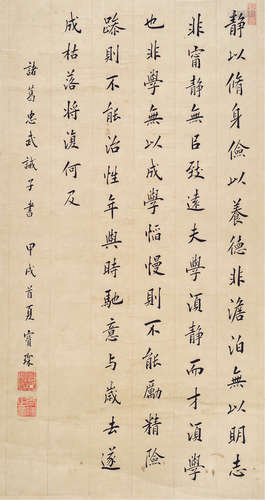 静以脩身儉以養德非澹泊無以明志
非甯静無以致遠夫學須静而才須學
也非學無以成學慆慢則不能勵精險
躁則不能治性年與時馳意与歲去遂
成枯落將復何及
諸葛忠武誡子書 甲戌首夏寶琛